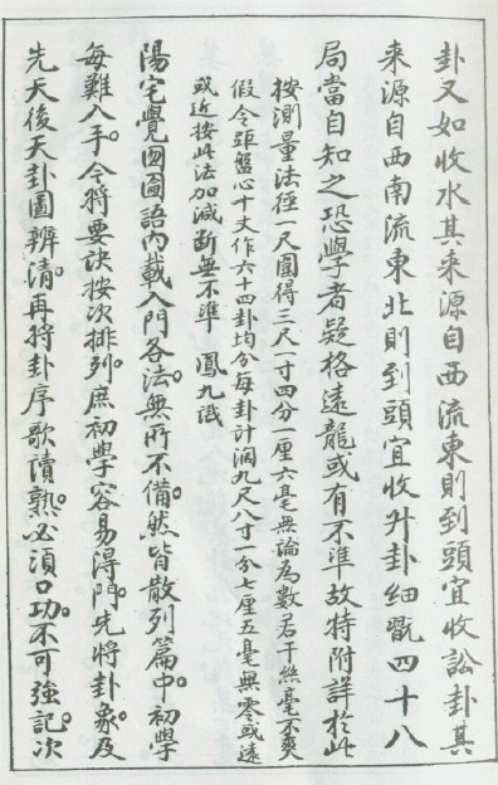 卦又如收水其来源自西流東則到頭宜收訟卦其
来源自西南流東北則到頭宜收升卦細翫四十八
局當自知之恐學者疑格遠龍或有不準故特附詳於此
按測量法徑一尺圓得三尺一寸四分一厘六毫無論為數若干絲毫不爽
假令距盤心十丈作六十四卦均分每卦計濶九尺八寸一分七厘五毫無零或遠
或近按此法加減斷無不準 鳳九識
陽宅覺圖語內載入門各法。無所不備然皆散列篇中。初學
每難入手。今將要訣按次排列。庶初學容易得門。先將卦象。及
先天後天卦圖辨清。再將卦序歌讀熟。必須口功。不可強記。次